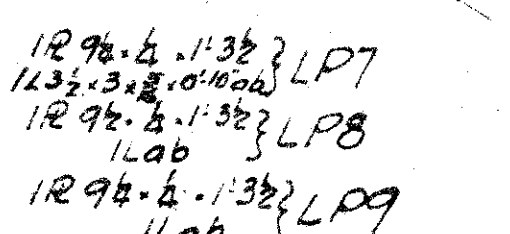 1R 9½·¼·1'3½ } LP7
1L3½×3×⅜×0'10" ab
1R 9½·¼·1'3½ } LP8
1Lab
1R 9½·¼·1'3½ } LP9
1Lab